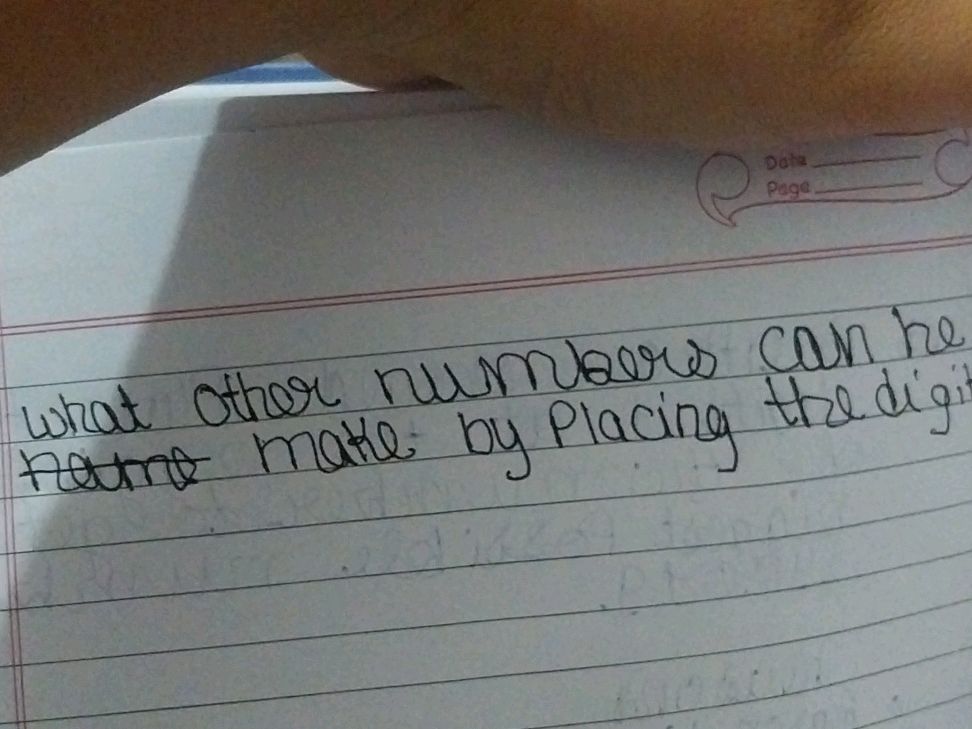 Date
Page
what other numbers can he
name make by Placing the digit